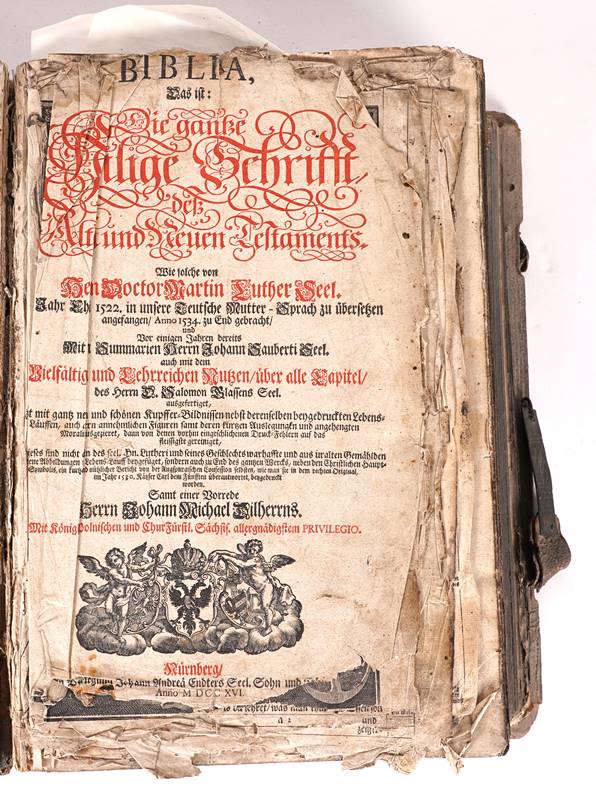 BIBLIA,
Das ist:
Die gantze
Heilige Schrifft,
deß
Alt und Neuen Testaments.
Wie solche von
Herrn Doctor Martin Luther Seel.
Jahr Chr 1522. in unsere Teutsche Mutter-Sprach zu übersetzen
angefangen/ Anno 1534. zu End gebracht/
und
Vor einigen Jahren bereits
Mit Summarien Herrn Johann Sauberti Seel.
auch mit dem
Vielfältig und Lehrreichen Nutzen/ über alle Capitel/
des Herrn D. Salomon Glassens Seel.
ausgefertiget,
mit gantz neu und schönen Kupffer-Bildnissen nebst derenselben beygedruckten Lebens-
Läuffen, auch annehmlichen Figuren samt deren kurtzen Auslegungen und angehengten
ausgezieret, dann von denen vorhin eingeschlichenen Druck-Fehlern auf das
fleissigste gereiniget,
sind nicht an des seel. Hn. Lutheri und seines Geschlechts warhaffte und aus uralten Gemählden
Abbildungen Lebens-Lauff beygefüget, sondern auch zu End des gantzen Wercks, neben den Christlichen Haupt-
Symbolis, ein kurtz nützlicher Bericht von der Augspurgischen Confession selbsten, wie man sie in dem rechten Original,
im Jahr 1530. Käyser Carl dem Fünfften überantwortet, beygedruckt
worden.
Samt einer Vorrede
Herrn Johann Michael Dilherrns.
Mit König Polnischen und ChurFürstl. Sächsis. allergnädigstem PRIVILEGIO.
Nürnberg/
Verlegung Johann Andreä Endters Seel. Sohn und
Anno M DCC XVI.
was man
und